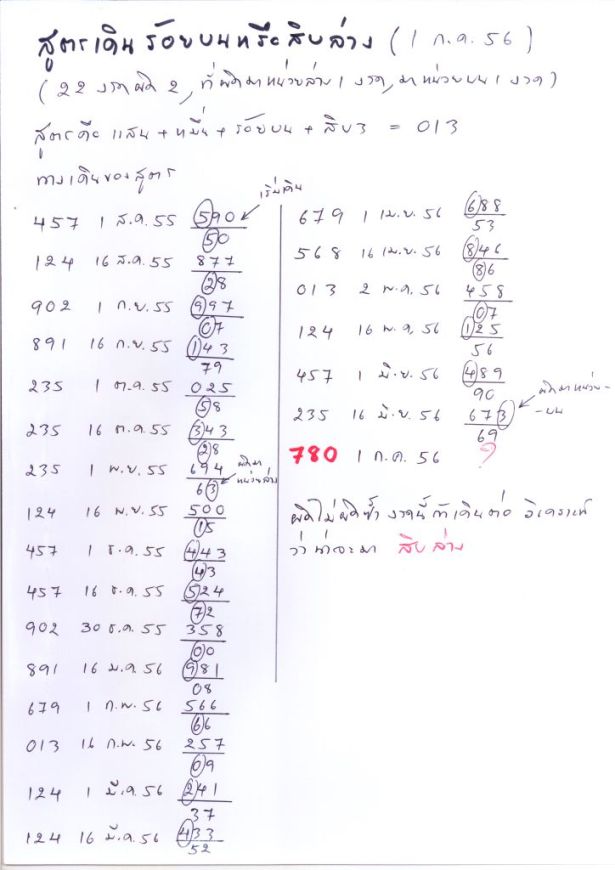 สูตรเดินร้อยบนหรือสิบล่าง (1 ก.ค. 56)
(22 งวดผิด 2, ที่ผิดมาหน่วยล่าง 1 งวด, มาหน่วยบน 1 งวด)
สูตรคือ แสน + หมื่น + ร้อยบน + สิบ3 = 013
ทางเดินของสูตร
เริ่มเดิน
457 1 ส.ค. 55 590
50
124 16 ส.ค. 55 877
28
902 1 ก.ย. 55 997
07
891 16 ก.ย. 55 143
79
235 1 ต.ค. 55 025
58
235 16 ต.ค. 55 343
28
235 1 พ.ย. 55 694
63
ผิดมา
หน่วยล่าง
124 16 พ.ย. 55 500
15
457 1 ธ.ค. 55 443
43
457 16 ธ.ค. 55 524
72
902 30 ธ.ค. 55 358
00
891 16 ม.ค. 56 981
08
679 1 ก.พ. 56 566
66
013 16 ก.พ. 56 257
09
124 1 มี.ค. 56 241
37
124 16 มี.ค. 56 433
52
679 1 เม.ย. 56 688
53
568 16 เม.ย. 56 846
86
013 2 พ.ค. 56 458
07
124 16 พ.ค. 56 125
56
457 1 มิ.ย. 56 489
90
235 16 มิ.ย. 56 673
69
ผิดมาหน่วย-
-บน
780 1 ก.ค. 56 ?
ผิดไม่ผิดซ้ำ งวดนี้ถ้าเดินต่อ วิเคราะห์
ว่าน่าจะมา สิบล่าง